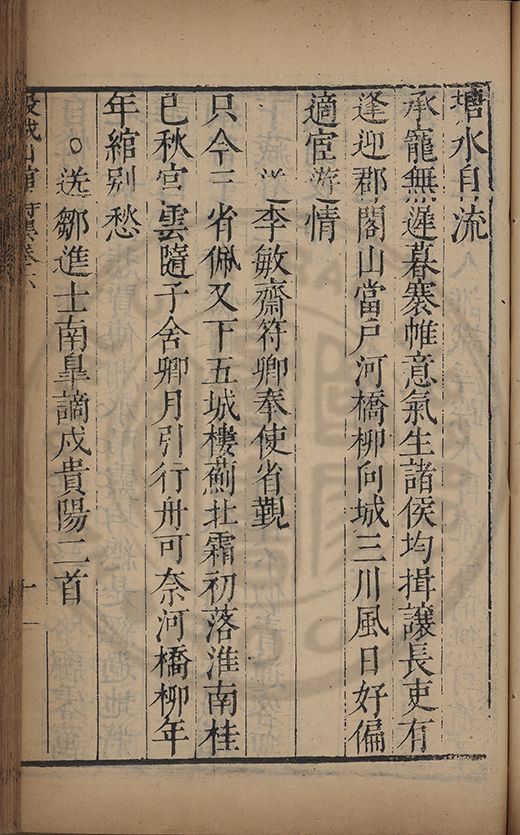 塘水自流
承寵無遲暮褰帷意氣生諸侯均揖讓長吏有
逢迎郡閣山當戶河橋柳向城三川風日好偏
適宦遊情
送李敏齋符卿奉使省覲
只今三省佩又下五城樓薊北霜初落淮南桂
已秋官雲隨子舍卿月引行舟可奈河橋柳年
年綰別愁
○送鄒進士南臯謫戍貴陽二首
穀城山館詩集卷六
十一